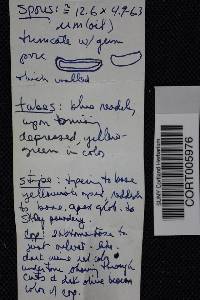 Spores: ≅ 12.6 x 4.9-6.3
µm (oil)
truncate w/ germ
pore
thick walled
tubes: blue readily
upon bruising
depressed, yellow-
green in color
stipe: tapering to base
yellowish apex, reddish
to base, apex glab. to
slky powdery.
cap: subtomentose to
just velvet-like.
dark wine red color
undertone showing through
cuts a dark olive brown
color of cap.
SUNY Cortland Herbarium
CORT005976